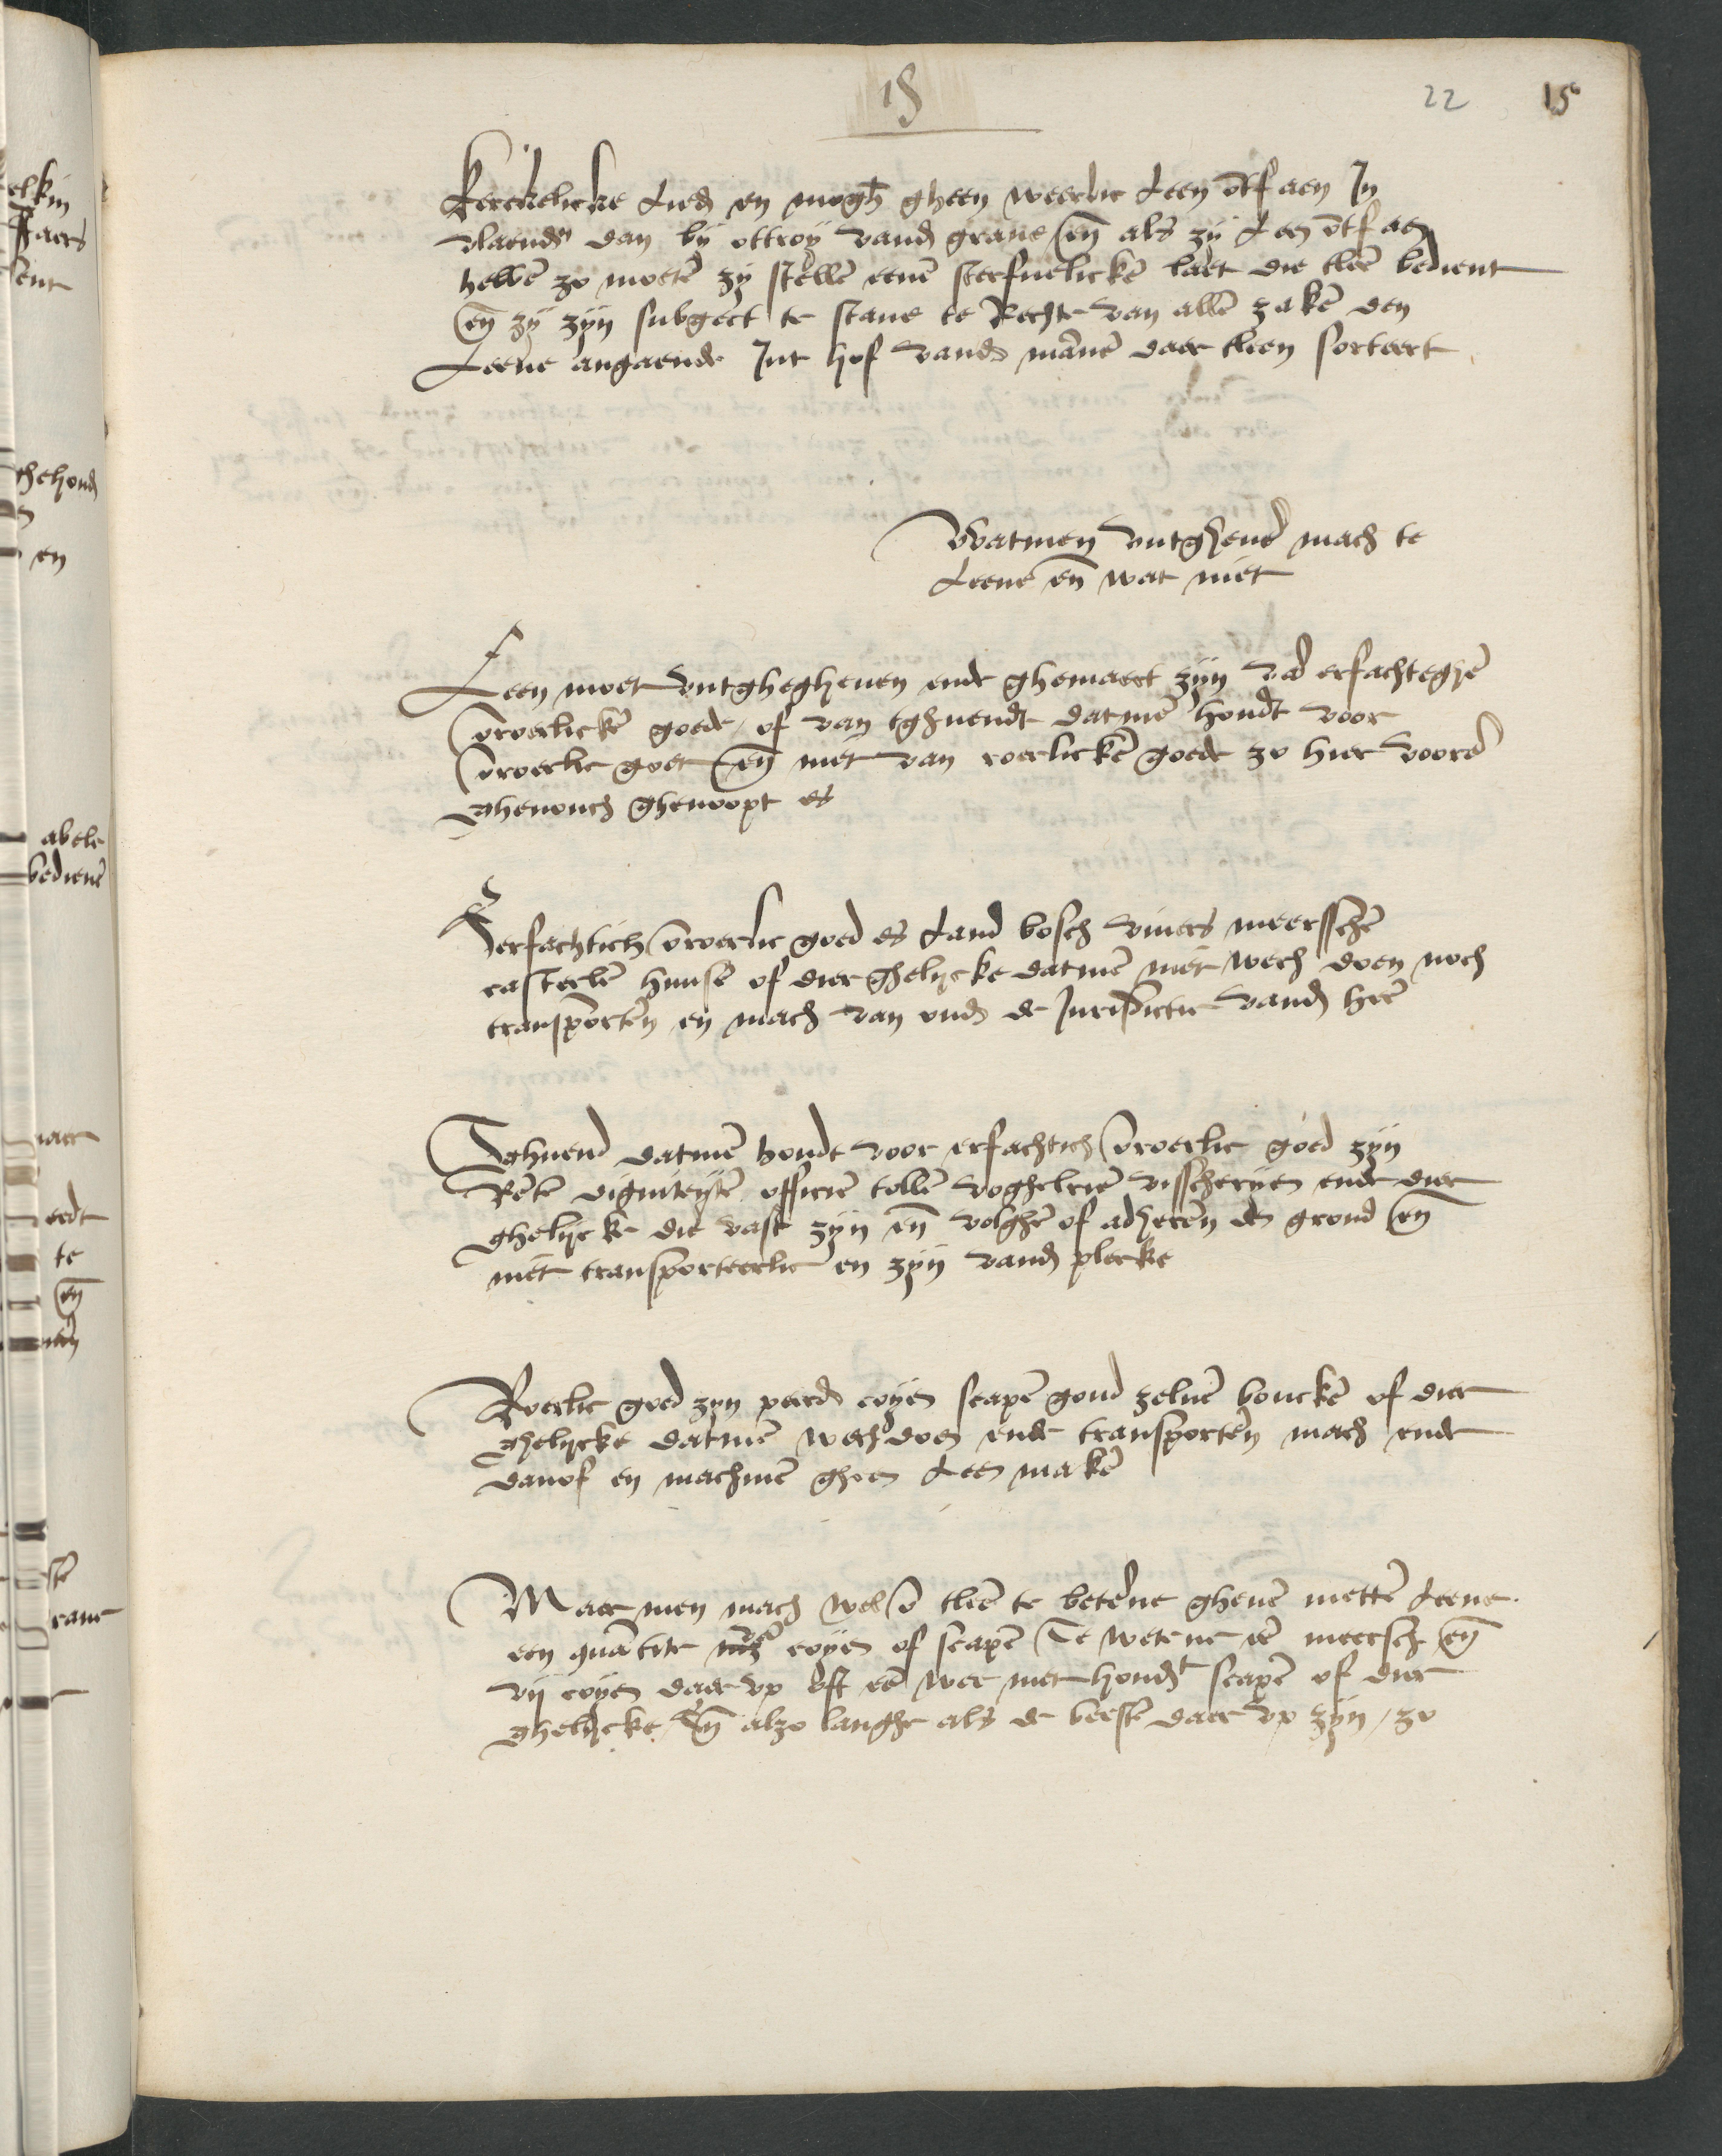 15
22 15
Kerckelicke Lieden en moghen gheen weerlic Leen ōtfaen In
vlaendren dan bij ottroij vanden graue eñ als zij Leen ōtfaen
hebbē zo moetē zij stellē eenē sterfuelickē laet die tleē bedient
eñ zij zijn subgect te stane te Rechte van allē zakē den
Leene angaende Int hof vanden mānē daer tleen sorteert
Watmen vutgheuē mach te
Leene eñ wat niet
Leen moet vutghegheuen ende ghemaect zijn vā erfachteghē
ōroerlickē goede / of van tghuendt datmē houdt voor
ōroerlic goet eñ niet van roerlickē goede zo hier voorē
ghenouch ghenoopt es
Erfachtich ōroerlic goed es Land bosch viuers meersschē
casteelē huuse of dierghelijcke datmē niet wech doen noch
transportē en mach van onder de Jurisdictie vanden heere
Tghuend datmē houdt voor erfachtich ōroerlic goed zijn
Rētē digniteijtē officiē tollē voghelrie visscherijen ende dier
ghelijcke die vast zijn eñ volghē of adherēn den grond eñ
niet transporteerlic en zijn vander plecke
Roerlic goed zijn peerden coijen scapē goud zeluer bouckē of dier
ghelijcke datmē wech doen ende transportēn mach ende
danof en machmē gheen Leen makē
Maer men mach wel ō tleē te beterne gheuē mettē Leene
een quātite van coijen of scapē Te wetene eē meersch eñ
vij coijen daer vp oft eē wee met hondert scapē of dier
ghelijcke / Eñ alzo langhe als de beestē daer vp zijn / zo